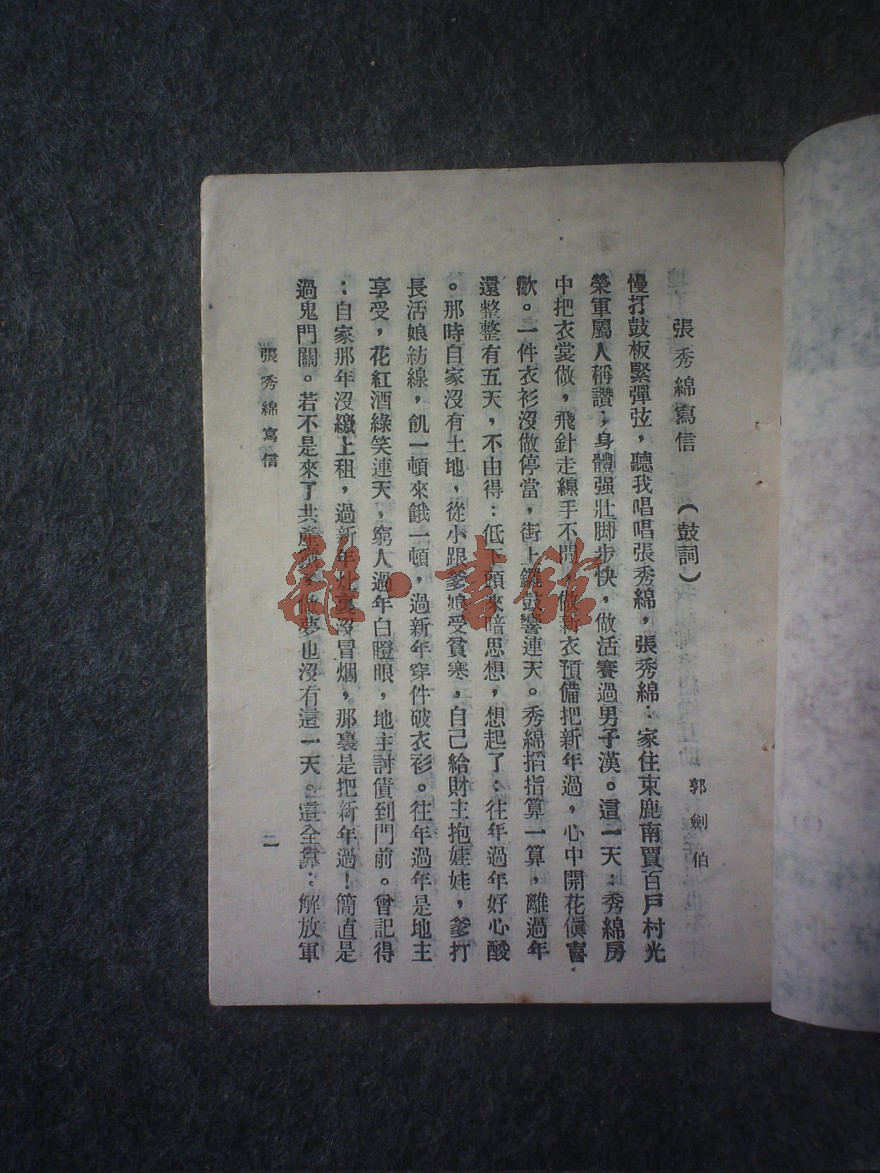 張秀綿寫信 （鼓詞）
郭劍伯
慢打鼓板緊彈弦，聽我唱唱張秀綿，張秀綿：家住束鹿南賈百戶村光
榮軍屬人稱讚；身體强壯脚步快，做活賽過男子漢。這一天：秀綿房
中把衣裳做，飛針走線手不閒，做新衣預備把新年過，心中開花眞喜
歡。一件衣衫沒做停當，街上鑼鼓響連天。秀綿掐指算一算，離過年
還整整有五天，不由得：低下頭來暗思想，想起了：往年過年好心酸
。那時自家沒有土地，從小跟爹娘受貧寒，自己給財主抱娃娃，爹打
長活娘紡線，飢一頓來餓一頓，過新年穿件破衣衫。往年過年是地主
享受，花紅酒綠笑連天，窮人過年白瞪眼，地主討債到門前。曾記得
：自家那年沒繳上租，過新年灶裏沒冒烟，那裏是把新年過！簡直是
過鬼門關。若不是來了共產 夢也沒有這一天。這全靠：解放軍
張秀綿寫信
二
雜·書館